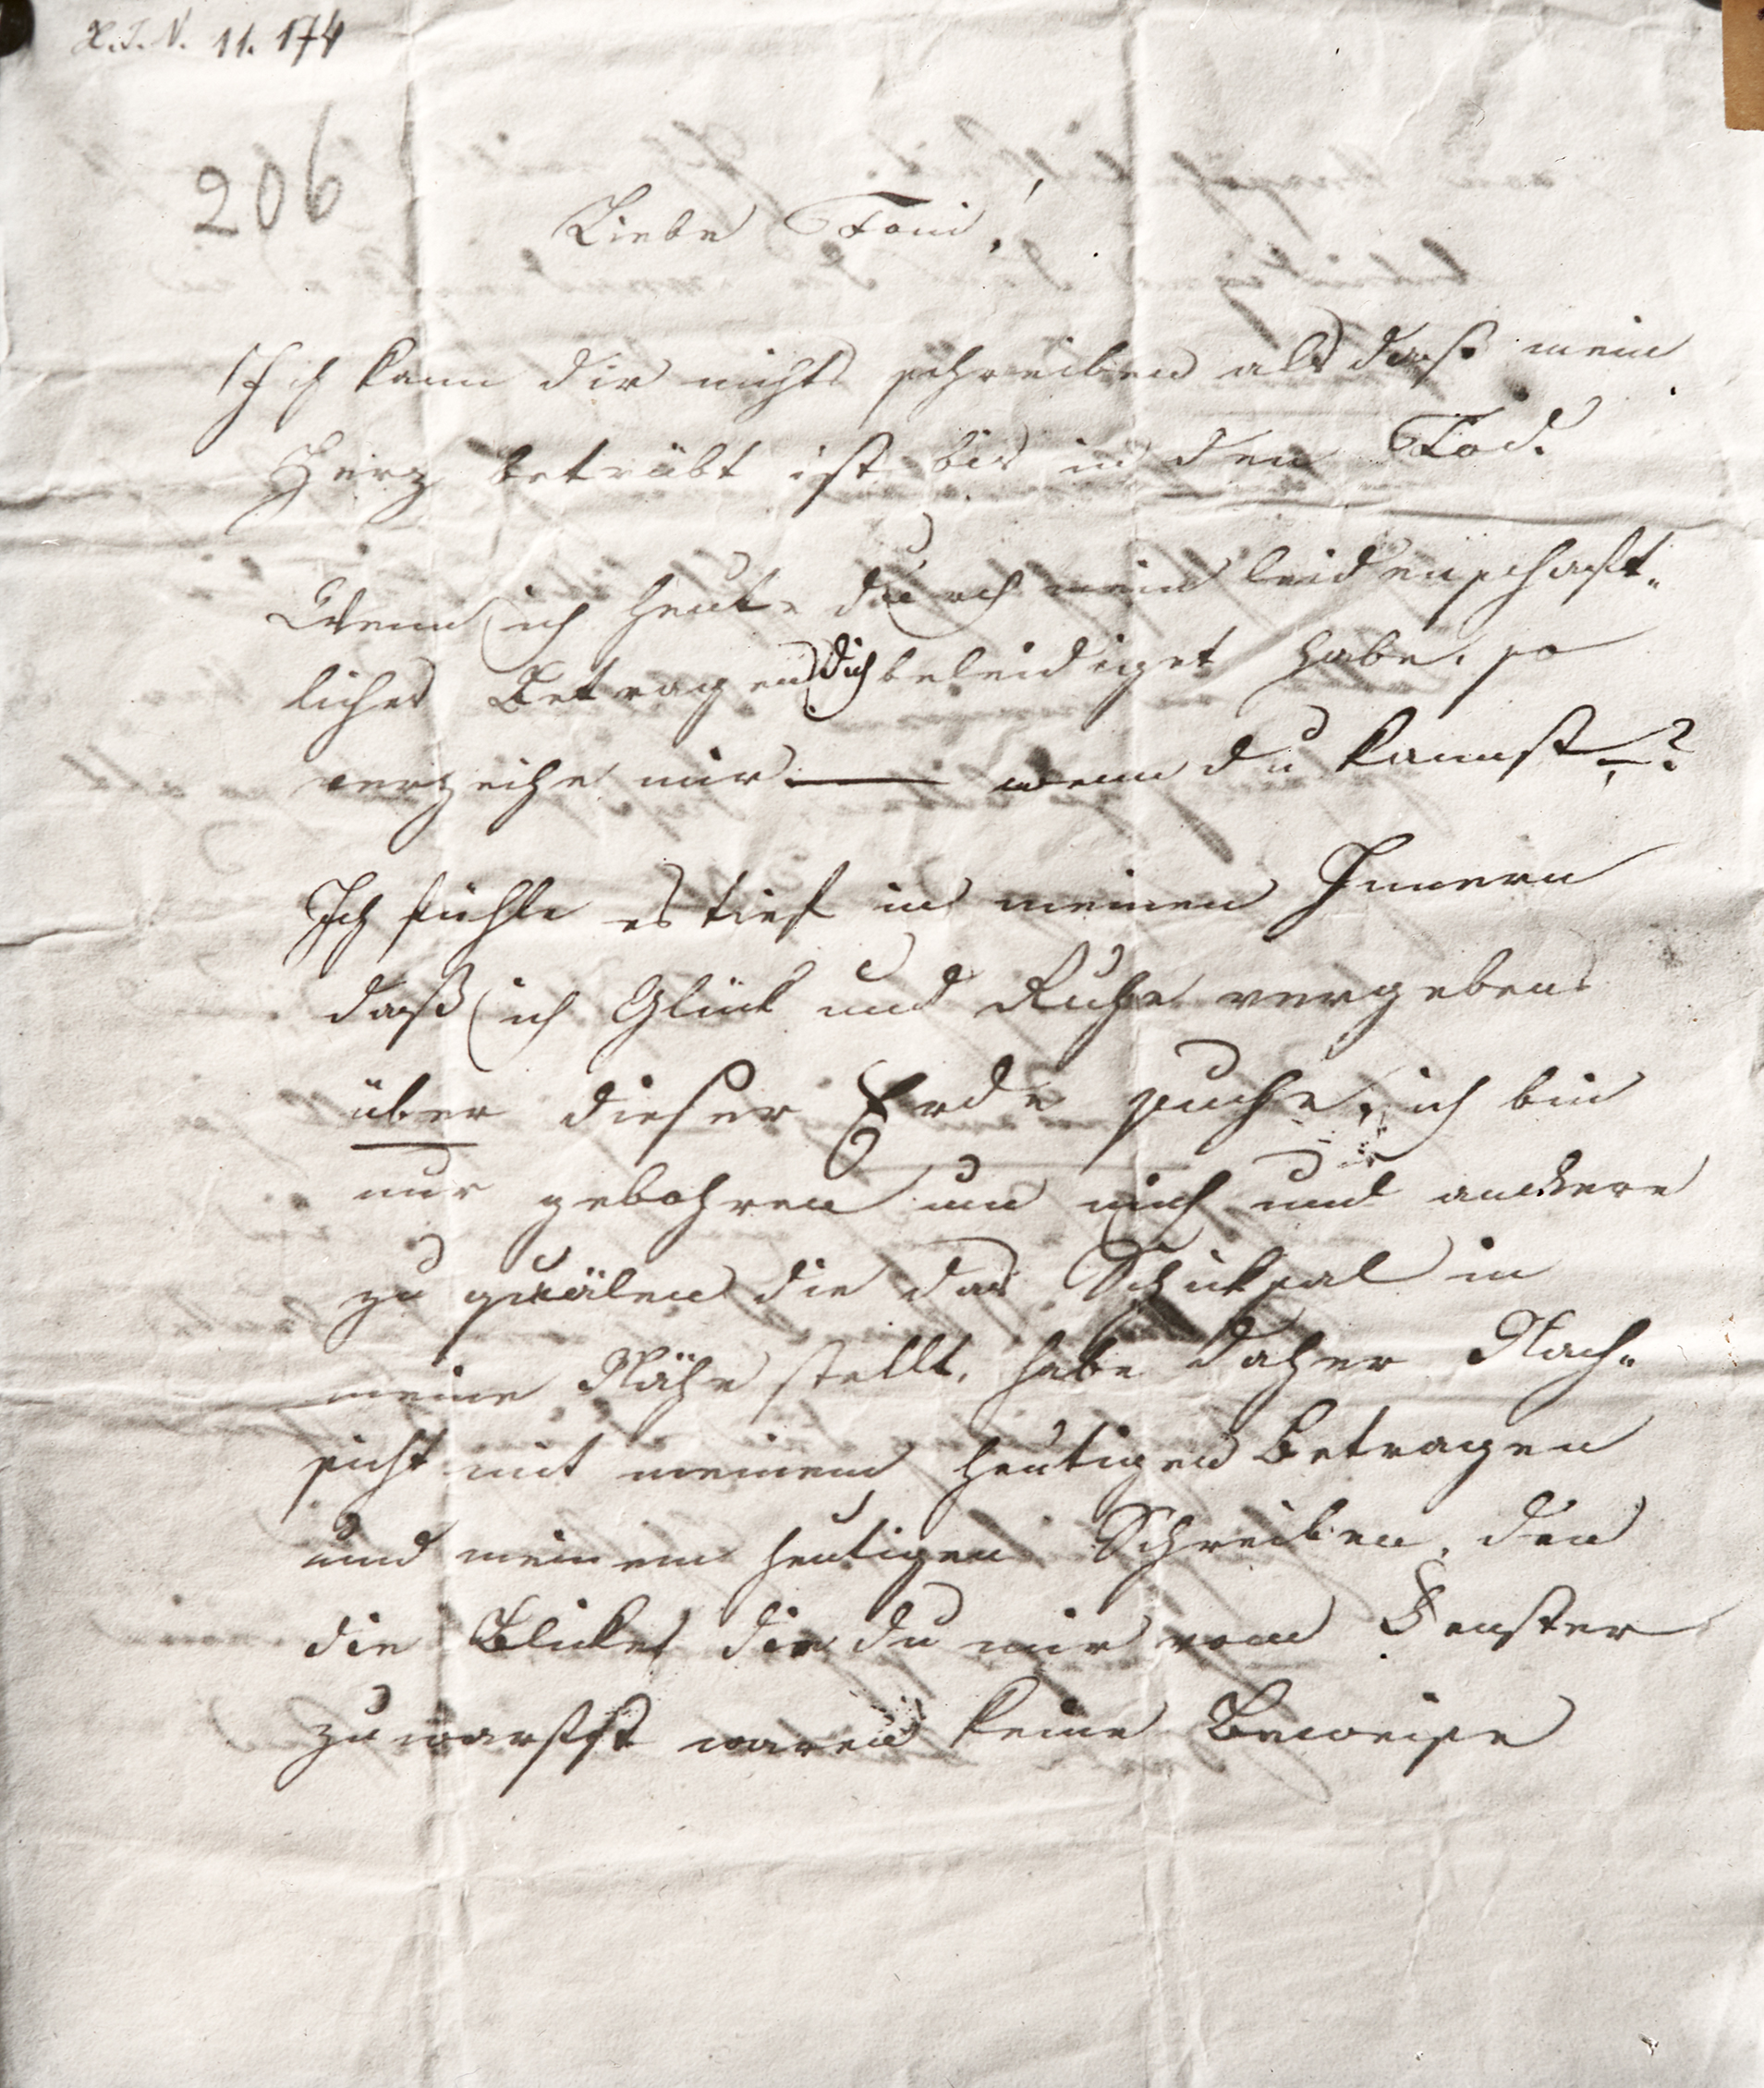 H.I.N. 11.174
206
Liebe Toni!
Ich kann dir nichts schreiben als daß mein
Herz betrübt ist bis in den Tod.
Wenn ich heute durch mein leidenschaft„
liches Betragen dich beleidiget habe, so
verzeihe mir — wenn du kannst —?
Ich fühle es tief in meinen Innern
daß ich Glück und Ruhe vergebens
über dieser Erde suche, ich bin
nur gebohren um mich und andere
zu quälen die das Schiksal in
meine Nähe stellt, habe daher Nach„
sicht mit meinem heutigen Betragen
und meinem heutigen Schreiben, den
die Blicke die du mir vom Fenster
zu warfst waren keine Beweise